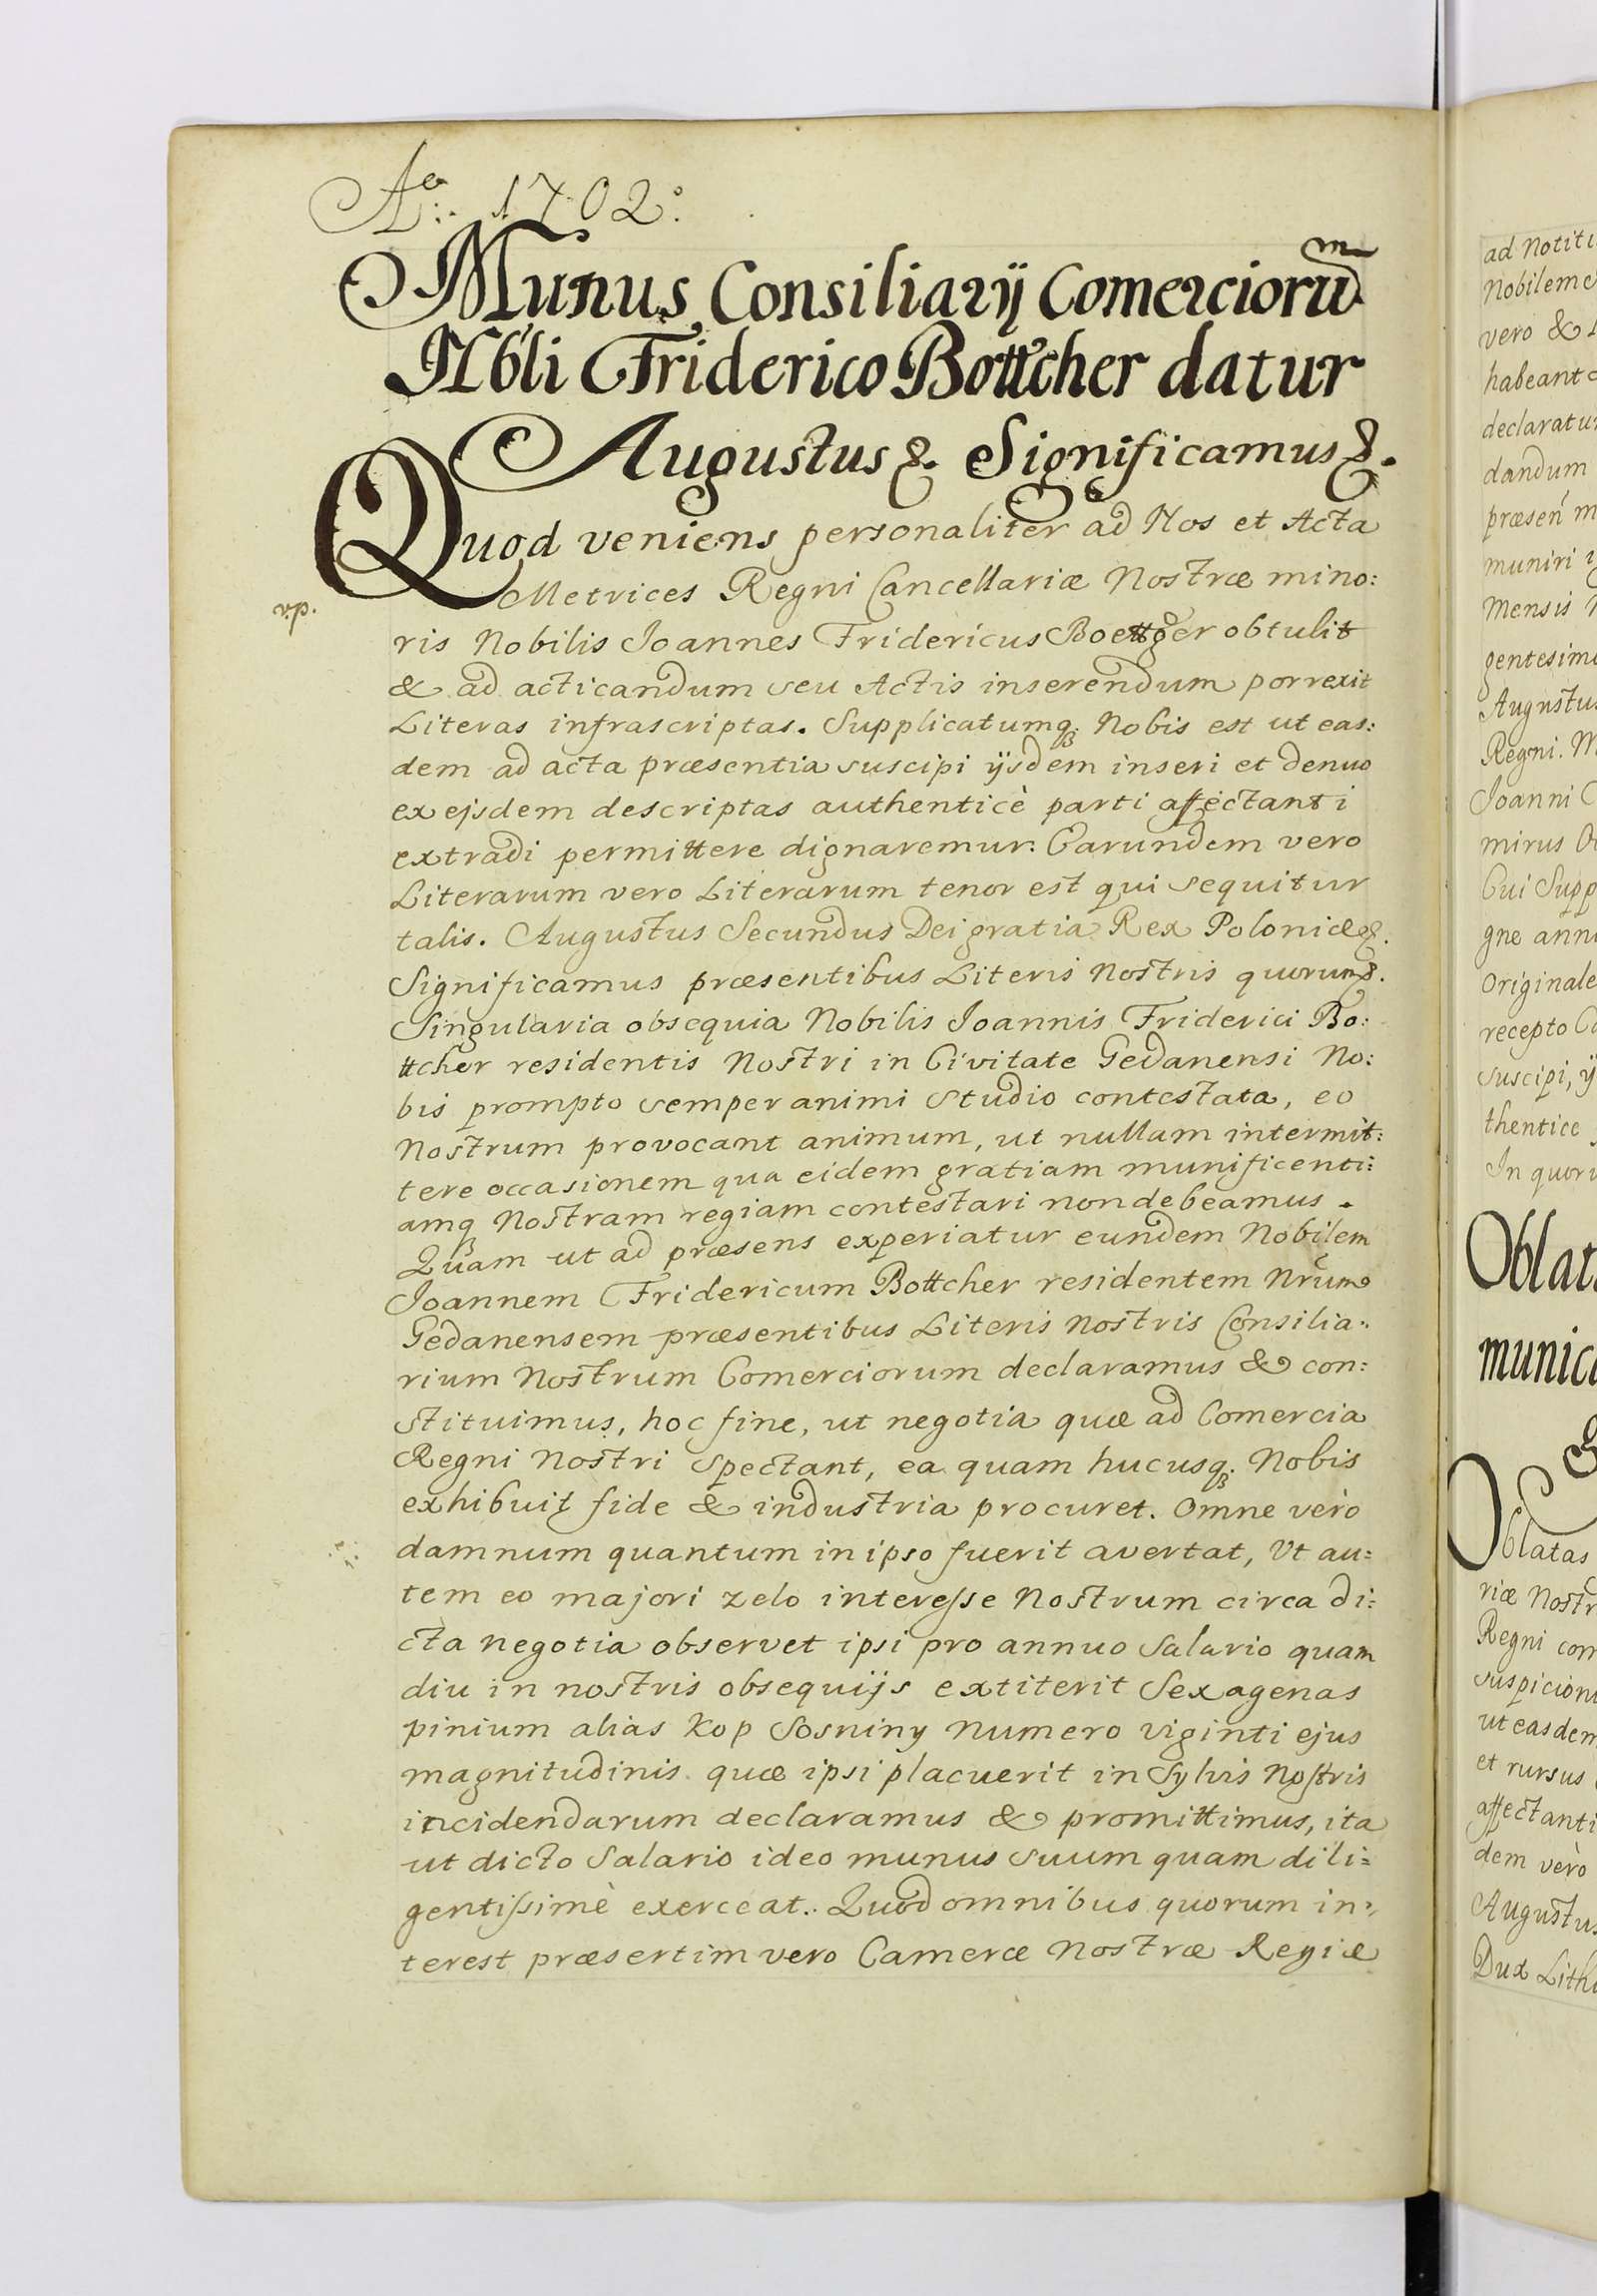 Ao: 1702:
Munus Consiliarij Comerciorum
Nbli Friderico Bottcher datur
Augustus &. Significamus &.
Quod veniens personaliter ad Nos et Acta
Metrices Regni Cancellariæ Nostræ mino:
ris Nobilis Joannes Fridericus Boettger obtulit
& ad acticandum seu Actis inserendum porrexit
Literas infrascriptas. Supplicatumq; Nobis est ut eas:
dem ad acta præsentia suscipi ijsdem inseri et denuo
ex ejsdem descriptas authenticè parti affectanti
extradi permittere dignaremur: Earundem vero
Literarum vero Literarum tenor est qui sequitur
talis. Augustus Secundus Dei gratia Rex Poloniæ &.
Significamus præsentibus Literis Nostris quorum &.
Singularia obsequia Nobilis Joannis Friderici Bo:
ttcher residentis Nostri in Civitate Gedanensi No:
bis prompto semper animi studio contestata, eo
Nostrum provocant animum, ut nullam intermit:
tere occasionem qua eidem gratiam munificenti:
amq; Nostram regiam contestari non debeamus.
Quam ut ad præsens experiatur eundem Nobilem
Joannem Fridericum Bottcher residentem Nrum
Gedanensem præsentibus Literis Nostris Consilia:
rium Nostrum Comerciorum declaramus & con:
stituimus, hoc fine, ut negotia quæ ad Comercia
Regni Nostri spectant, ea quam hucusq; Nobis
exhibuit fide & industria procuret. Omne vero
damnum quantum in ipso fuerit avertat, Ut au:
tem eo majori zelo interesse Nostrum circa di:
cta negotia observet ipsi pro annuo Salario quam
diu in nostris obsequijs extiterit Sexagenas
pinium alias Kop Sosniny Numero viginti ejus
magnitudinis quæ ipsi placuerit in Sylvis Nostris
incidendarum declaramus & promittimus, ita
ut dicto Salario ideo munus suum quam dili:
gentissimè exerceat. Quod omnibus quorum in:
terest præsertim vero Cameræ Nostræ Regiæ
ad Notiti
Nobilem
vero &
habeant
declaratu
dandum
præsen m
muniri
Mensis
gentesim
Augustus
Regni. M
Joanni
mirus
Cui Supp
gne ann
Originale
recepto
suscipi, ij
thentice
In quor
Oblat
munic
Oblatas
riæ Nostr
Regni com
suspicion
ut easdem
et rursus
affectanti
dem vèro
Augustus
Dux Lith